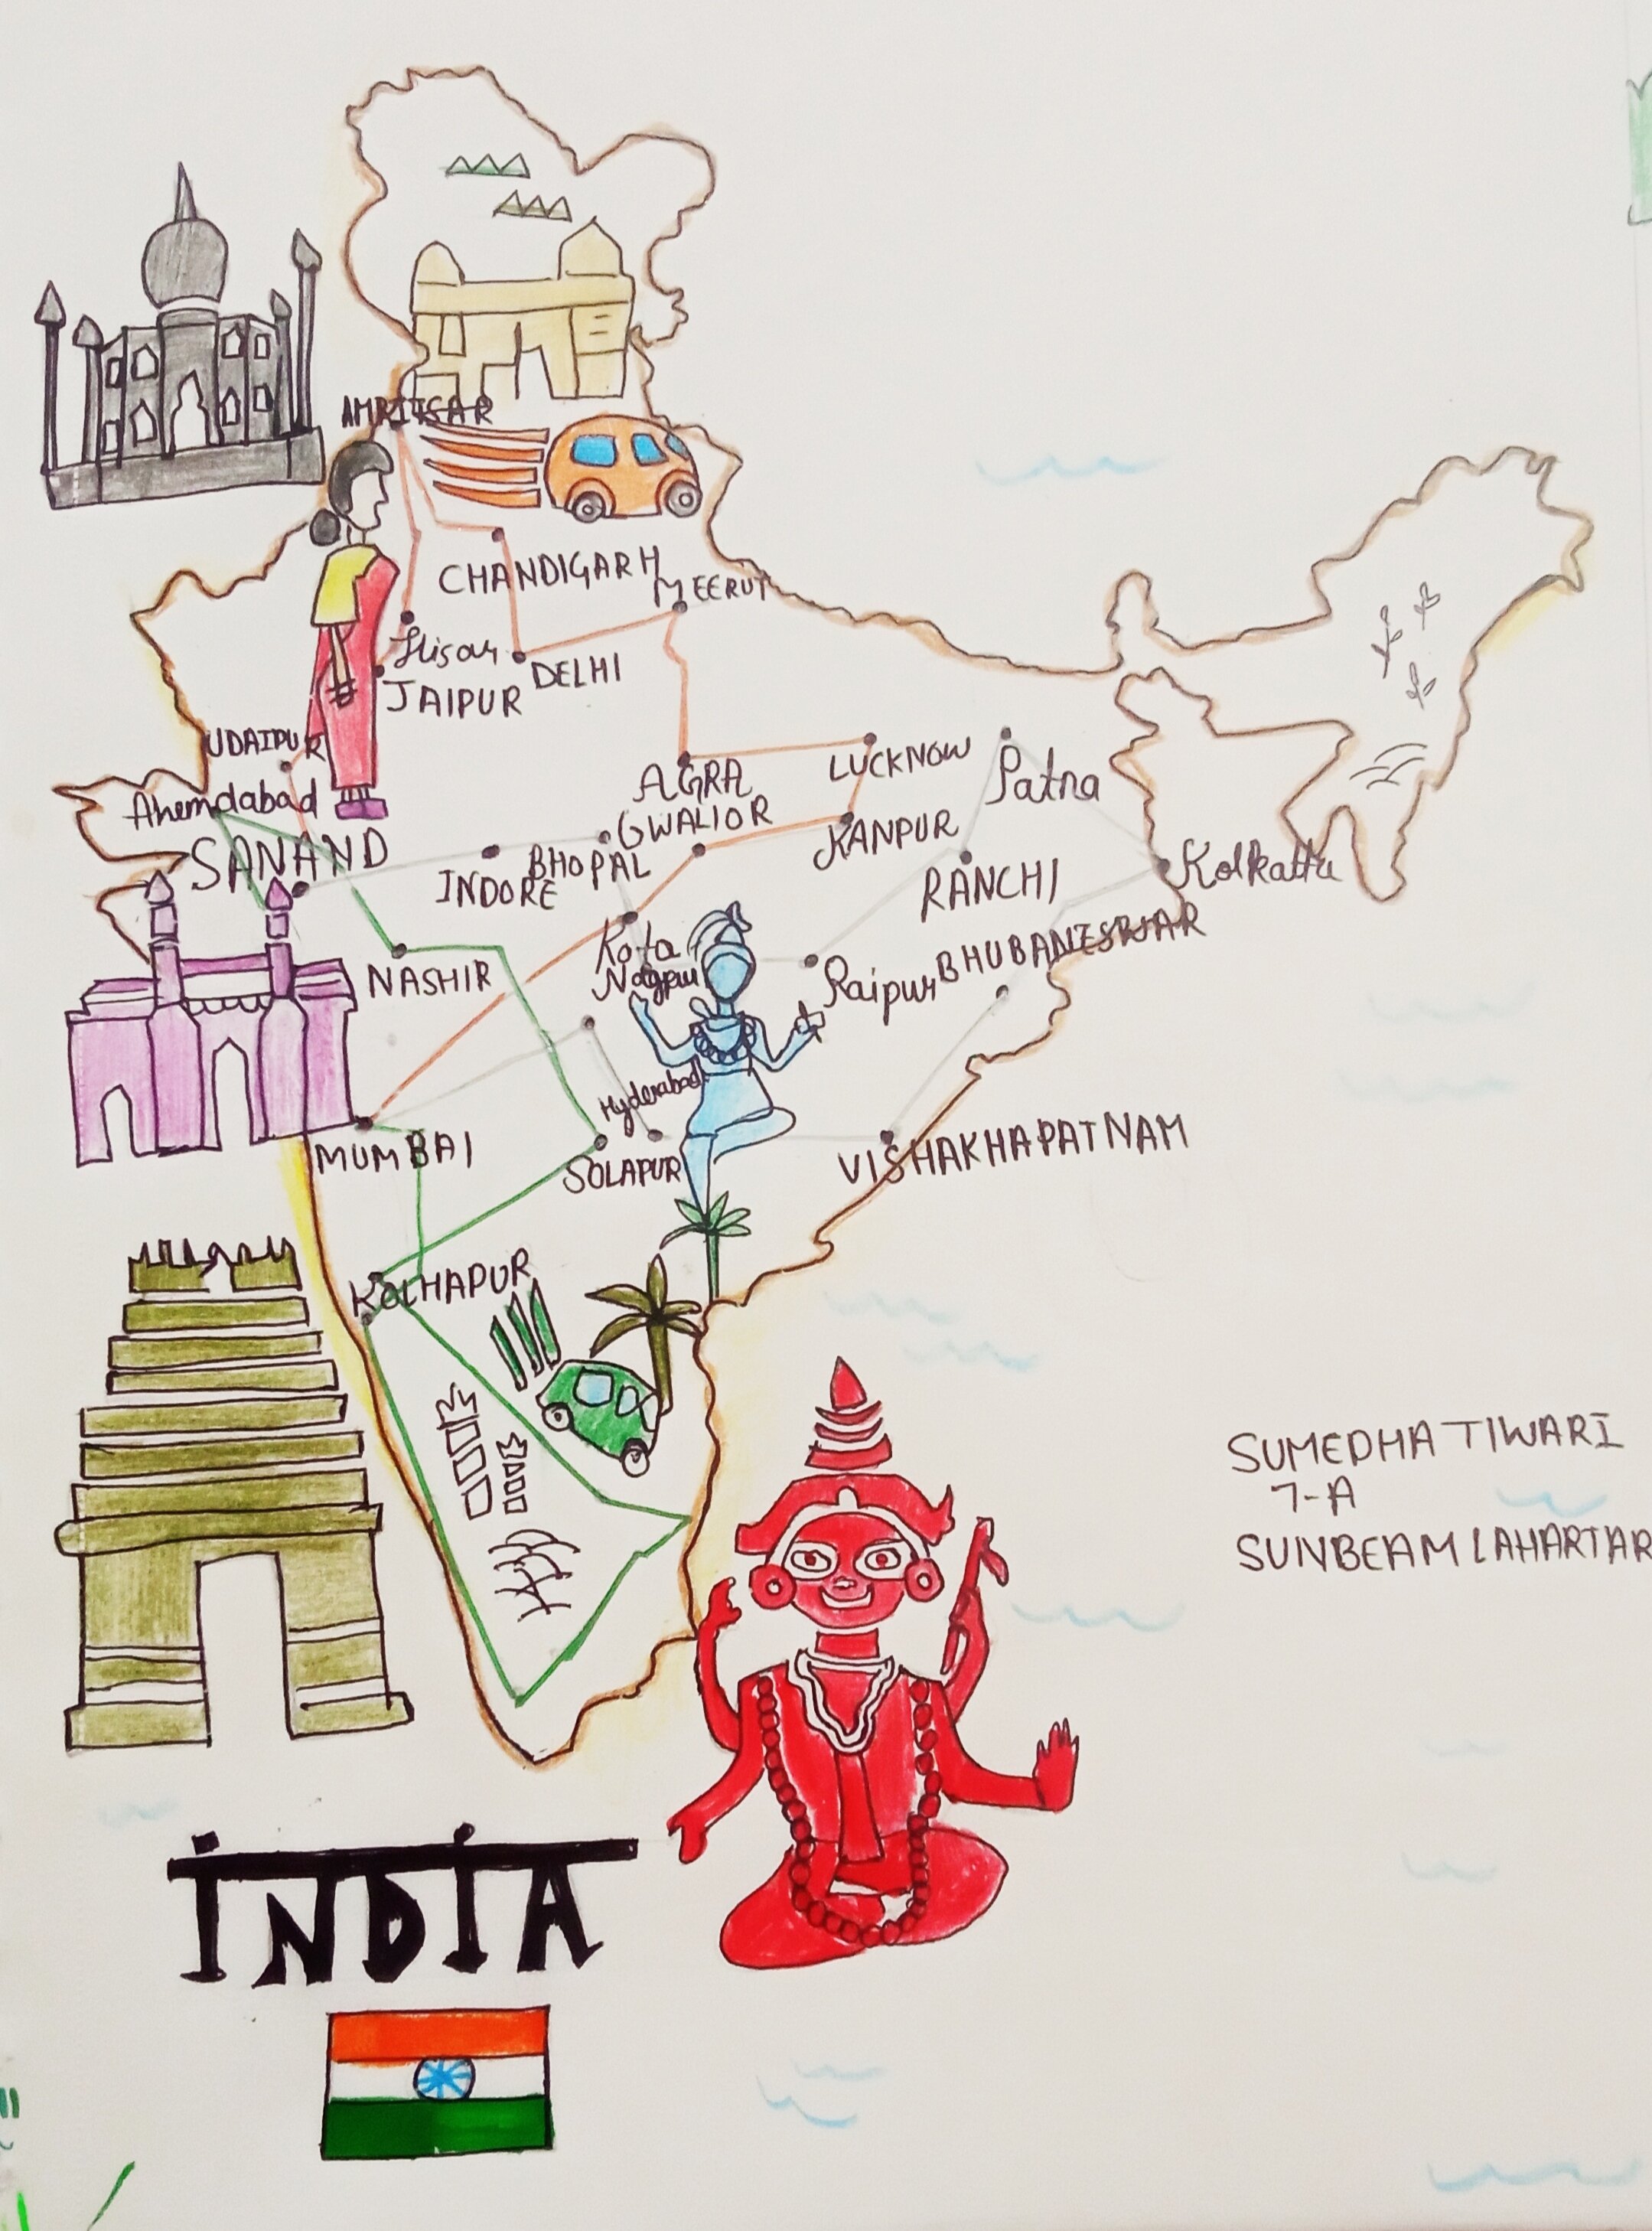 AMRITSAR
CHANDIGARH
MEERUT
Hisar
DELHI
JAIPUR
UDAIPUR
AGRA
LUCKNOW
Patna
Ahemdabad
GWALIOR
KANPUR
SANAND
BHOPAL
INDORE
RANCHI
Kolkatta
Kota
BHUBANESWAR
NASHIR
Nagpur
Raipur
Hyderabad
MUMBAI
SOLAPUR
VISHAKHAPATNAM
KOLHAPUR
SUMEDHA TIWARI
7-A
SUNBEAM LAHARTAR
INDIA